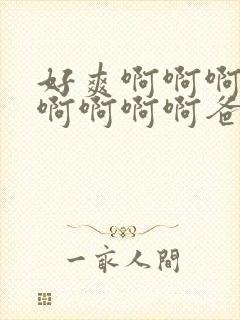 好爽啊啊啊
啊啊啊啊爸
一家人間